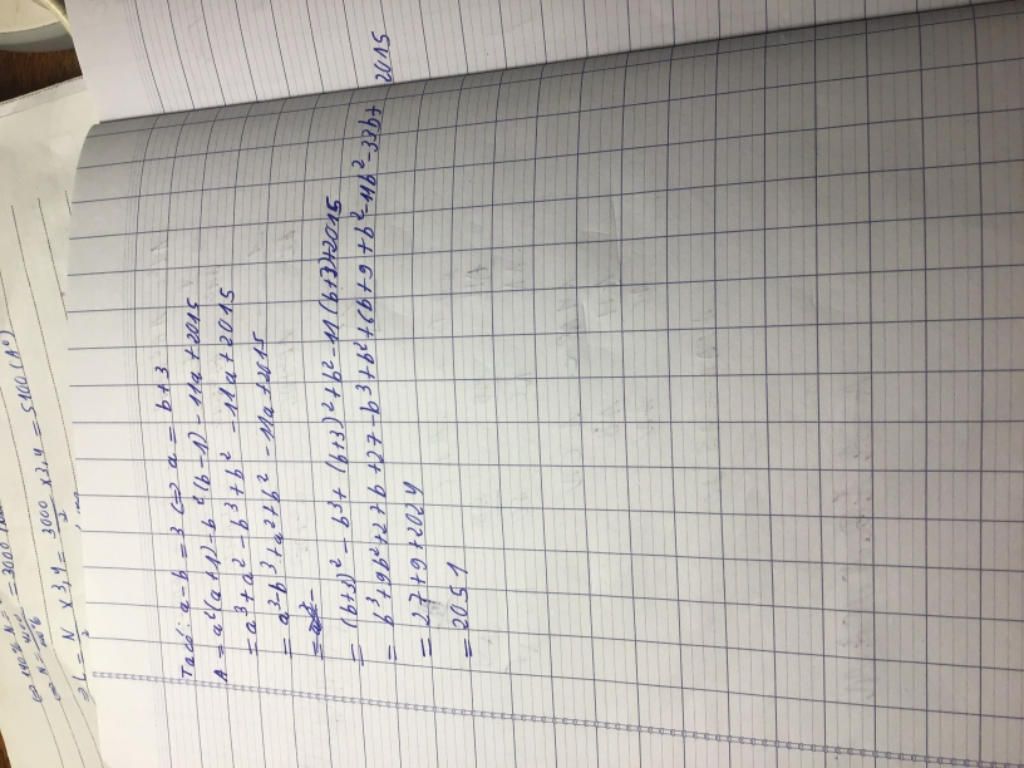 Ta có: a - b = 3 <=> a = b + 3
A = a²(a+1) - b²(b-1) - 11a + 2015
= a³ + a² - b³ + b² - 11a + 2015
= a³ - b³ + a² + b² - 11a + 2015
= (b+3)² - b³ + (b+3)² + b² - 11(b+3) + 2015
= b³ + 9b² + 27b + 27 - b³ + b² + 6b + 9 + b² - 11b² - 33b + 2015
= 27 + 9 + 2024
= 2051
= 3000
x 3,4 = 3000 x 3,4 = 5100 (A°)